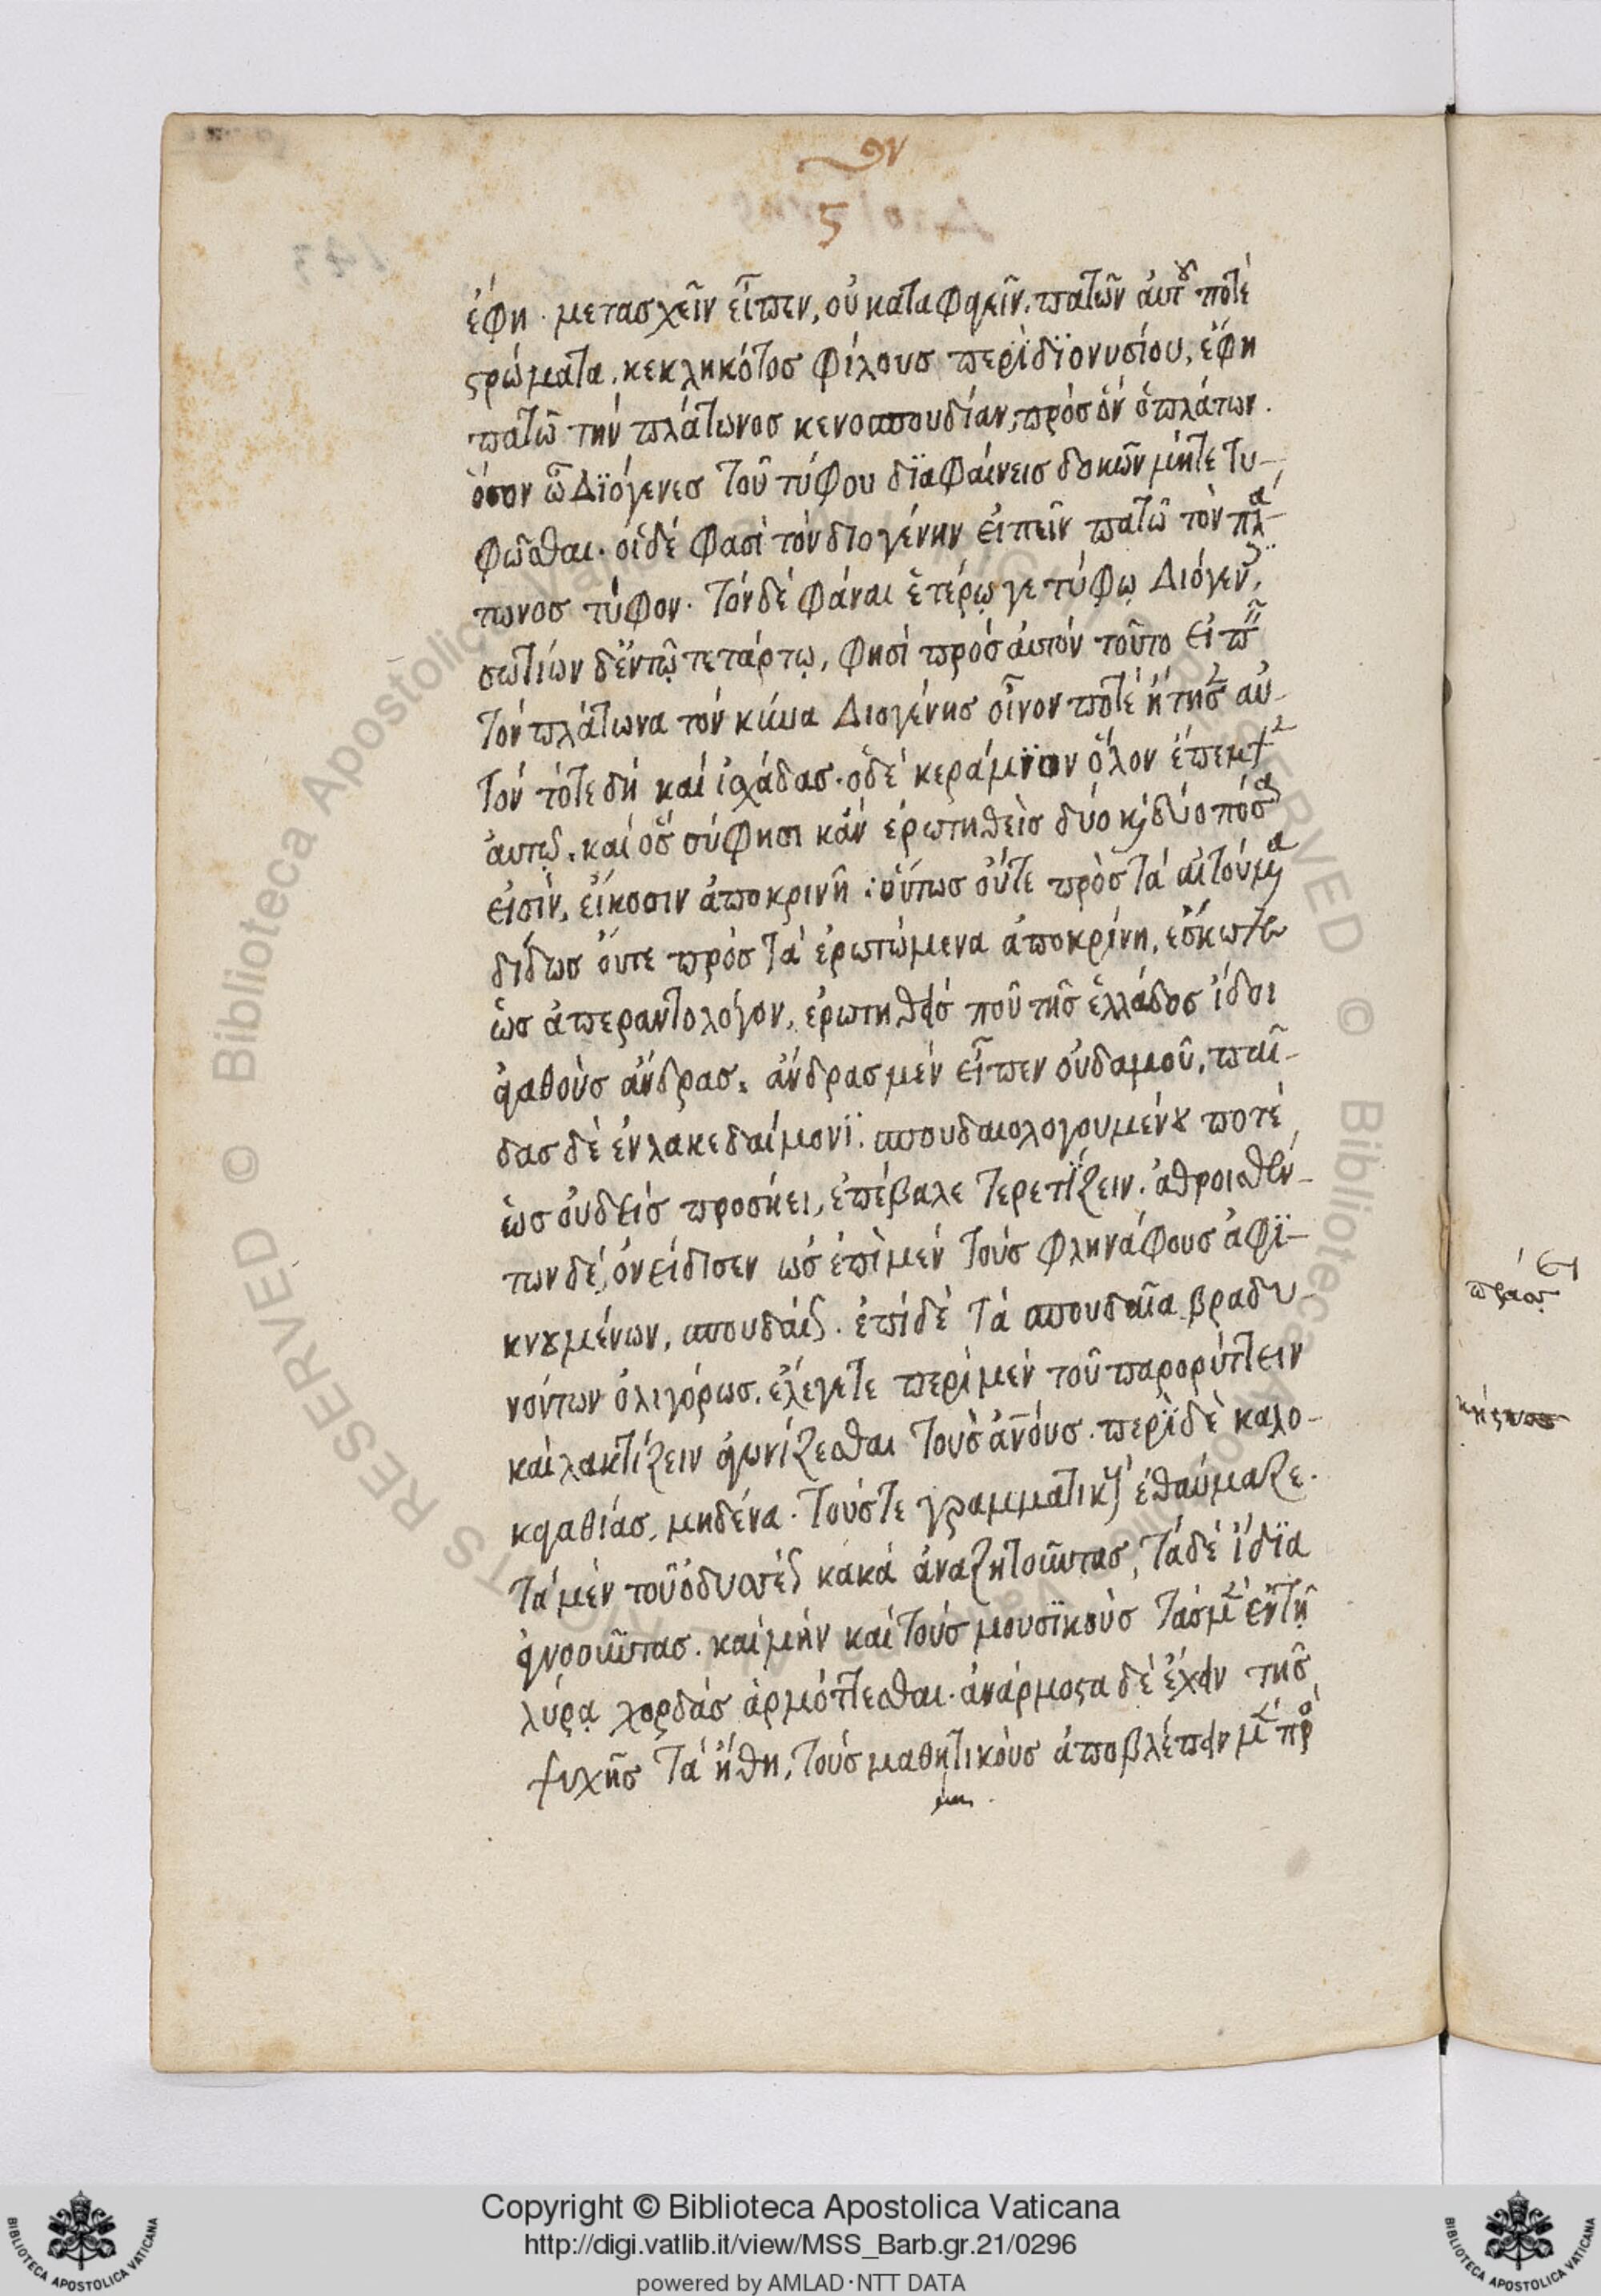 ϛ
ἔφη · μετασχεῖν εἶπεν, οὐ καταφαγεῖν. πατῶν αὐτοῦ ποτὲ
στρώματα, κεκληκότος φίλους περὶ διονυσίου, ἔφη
πατῶ τὴν πλάτωνος κενοσπουδίαν, πρὸς ὃν ὁ πλάτων.
ὅσον ὦ Διόγενες τοῦ τύφου διαφαίνεις δοκῶν μήτε τυ-
φῶσθαι · οἱ δέ φασι τὸν διογένην εἰπεῖν πατῶ τὸν πλά-
τωνος τύφον · τὸν δὲ φάναι ἑτέρω γε τύφω Διόγενες,
σωτίων δ' ἐν τῶ τετάρτω, φησὶ πρὸς αὐτὸν τοῦτο εἰπεῖν
τὸν πλάτωνα τὸν κύνα Διογένης οἶνον ποτὲ ἤτησεν αὐ-
τὸν τότε δὴ καὶ ἰσχάδας · ὁ δὲ κεράμιον ὅλον ἔπεμψεν
αὐτῶ. καὶ ὃς σύ φησι κἂν ἐρωτηθεὶς δύο καὶ δύο πόσα
εἰσὶν, εἴκοσιν ἀποκρινῆ : οὕπως οὔτε πρὸς τὰ αἰτούμενα
δίδως οὔτε πρὸς τὰ ἐρωτώμενα ἀποκρίνη, ἔσκωψε
ὡς ἀπεραντολόγον, ἐρωτηθεὶς ποῦ τῆς ἑλλάδος ἴδοι
ἀγαθοὺς ἄνδρας, ἄνδρας μὲν εἶπεν οὐδαμοῦ, παῖ-
δας δὲ ἐν λακεδαίμονι. σπουδαιολογουμένου ποτέ
ὡς οὐδεὶς προσήει, ἐπέβαλε τερετίζειν · ἀθροισθέν-
των δέ, ὀνείδισεν ὡς ἐπὶ μὲν τοὺς φληνάφους ἀφι-
κνουμένων, σπουδαίως. ἐπὶ δὲ τὰ σπουδαῖα βραδυ-
νόντων ὀλιγόρως. ἔλεγέ τε περὶ μὲν τοῦ παρορύττειν
καὶ λακτίζειν ἀγωνίζεσθαι τοὺς ἀνους. περὶ δὲ καλο-
καγαθίας, μηδένα · τούς τε γραμματικοὺς ἐθαύμαζε.
τὰ μὲν τοῦ ὀδυσσέως κακὰ ἀναζητοῦντας, τὰ δὲ ἴδια
ἀγνοοῦντας. καὶ μὴν καὶ τοὺς μουσικοὺς τὰς μὲν ἐν τῆ
λύρα χορδὰς ἁρμόττεσθαι · ἀνάρμοστα δὲ ἔχειν τῆς
ψυχῆς τὰ ἤθη, τοὺς μαθητικοὺς ἀποβλέπειν μὲν πρὸ
μα.
Copyright © Biblioteca Apostolica Vaticana
http://digi.vatlib.it/view/MSS_Barb.gr.21/0296
powered by AMLAD·NTT DATA